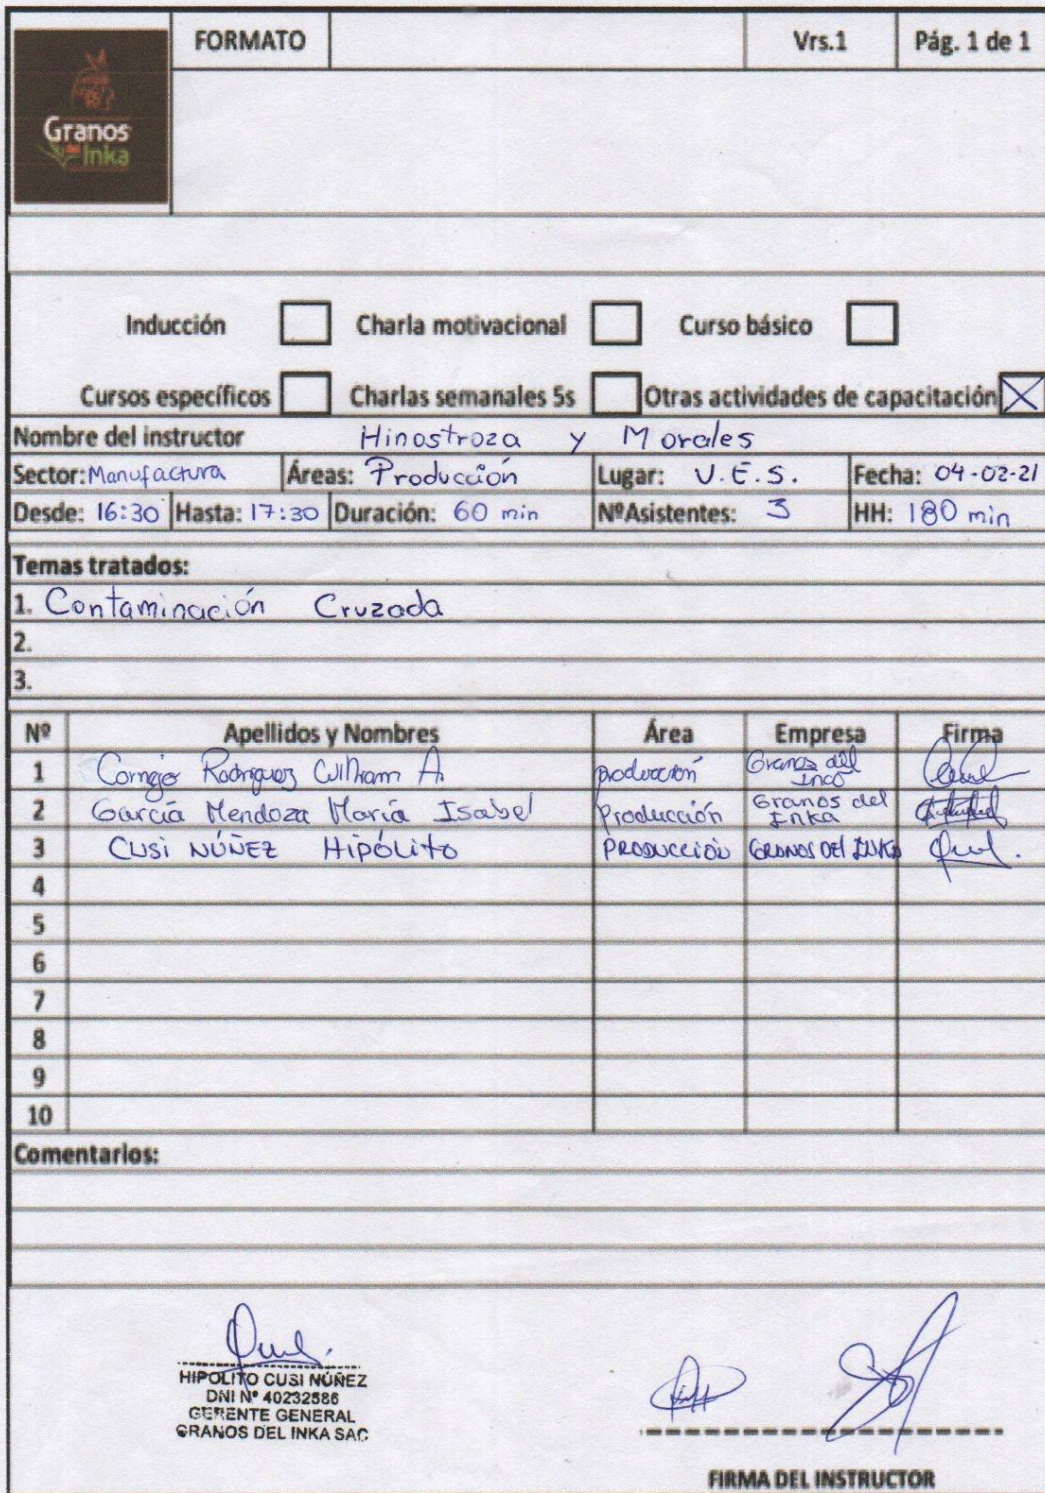 FORMATO Vrs.1 Pág. 1 de 1
Granos
del
Inka
Inducción Charla motivacional Curso básico
Cursos específicos Charlas semanales 5s Otras actividades de capacitación X
Nombre del instructor Hinostroza y Morales
Sector: Manufactura Áreas: Producción Lugar: V.E.S. Fecha: 04-02-21
Desde: 16:30 Hasta: 17:30 Duración: 60 min NºAsistentes: 3 HH: 180 min
Temas tratados:
1. Contaminación Cruzada
2.
3.
Nº Apellidos y Nombres Área Empresa Firma
1 Cornejo Rodriguez William A. producción Granos del Inca
2 García Mendoza María Isabel Producción Granos del Inka
3 CUSI NÚÑEZ HIPÓLITO PRODUCCIÓN GRANOS DEL INKA
4
5
6
7
8
9
10
Comentarios:
HIPOLITO CUSI NÚÑEZ
DNI Nº 40232586
GERENTE GENERAL
GRANOS DEL INKA SAC
FIRMA DEL INSTRUCTOR